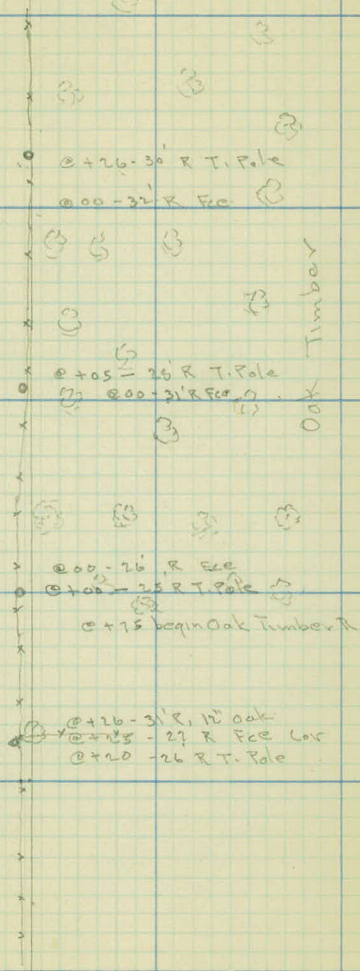 @ +26 - 30' R T. Pole
@ 00 - 32' R Fce
Oak Timber
@ +05 - 25' R T. Pole
@ 00 - 31' R Fce
@ 00 - 26' R Fce
@ +00 - 25 R T. Pole
@ +75 begin Oak Timber R
@ +26 - 31' R, 12" Oak
@ +25 - 27 R Fce Cor
@ +20 - 26 R T. Pole